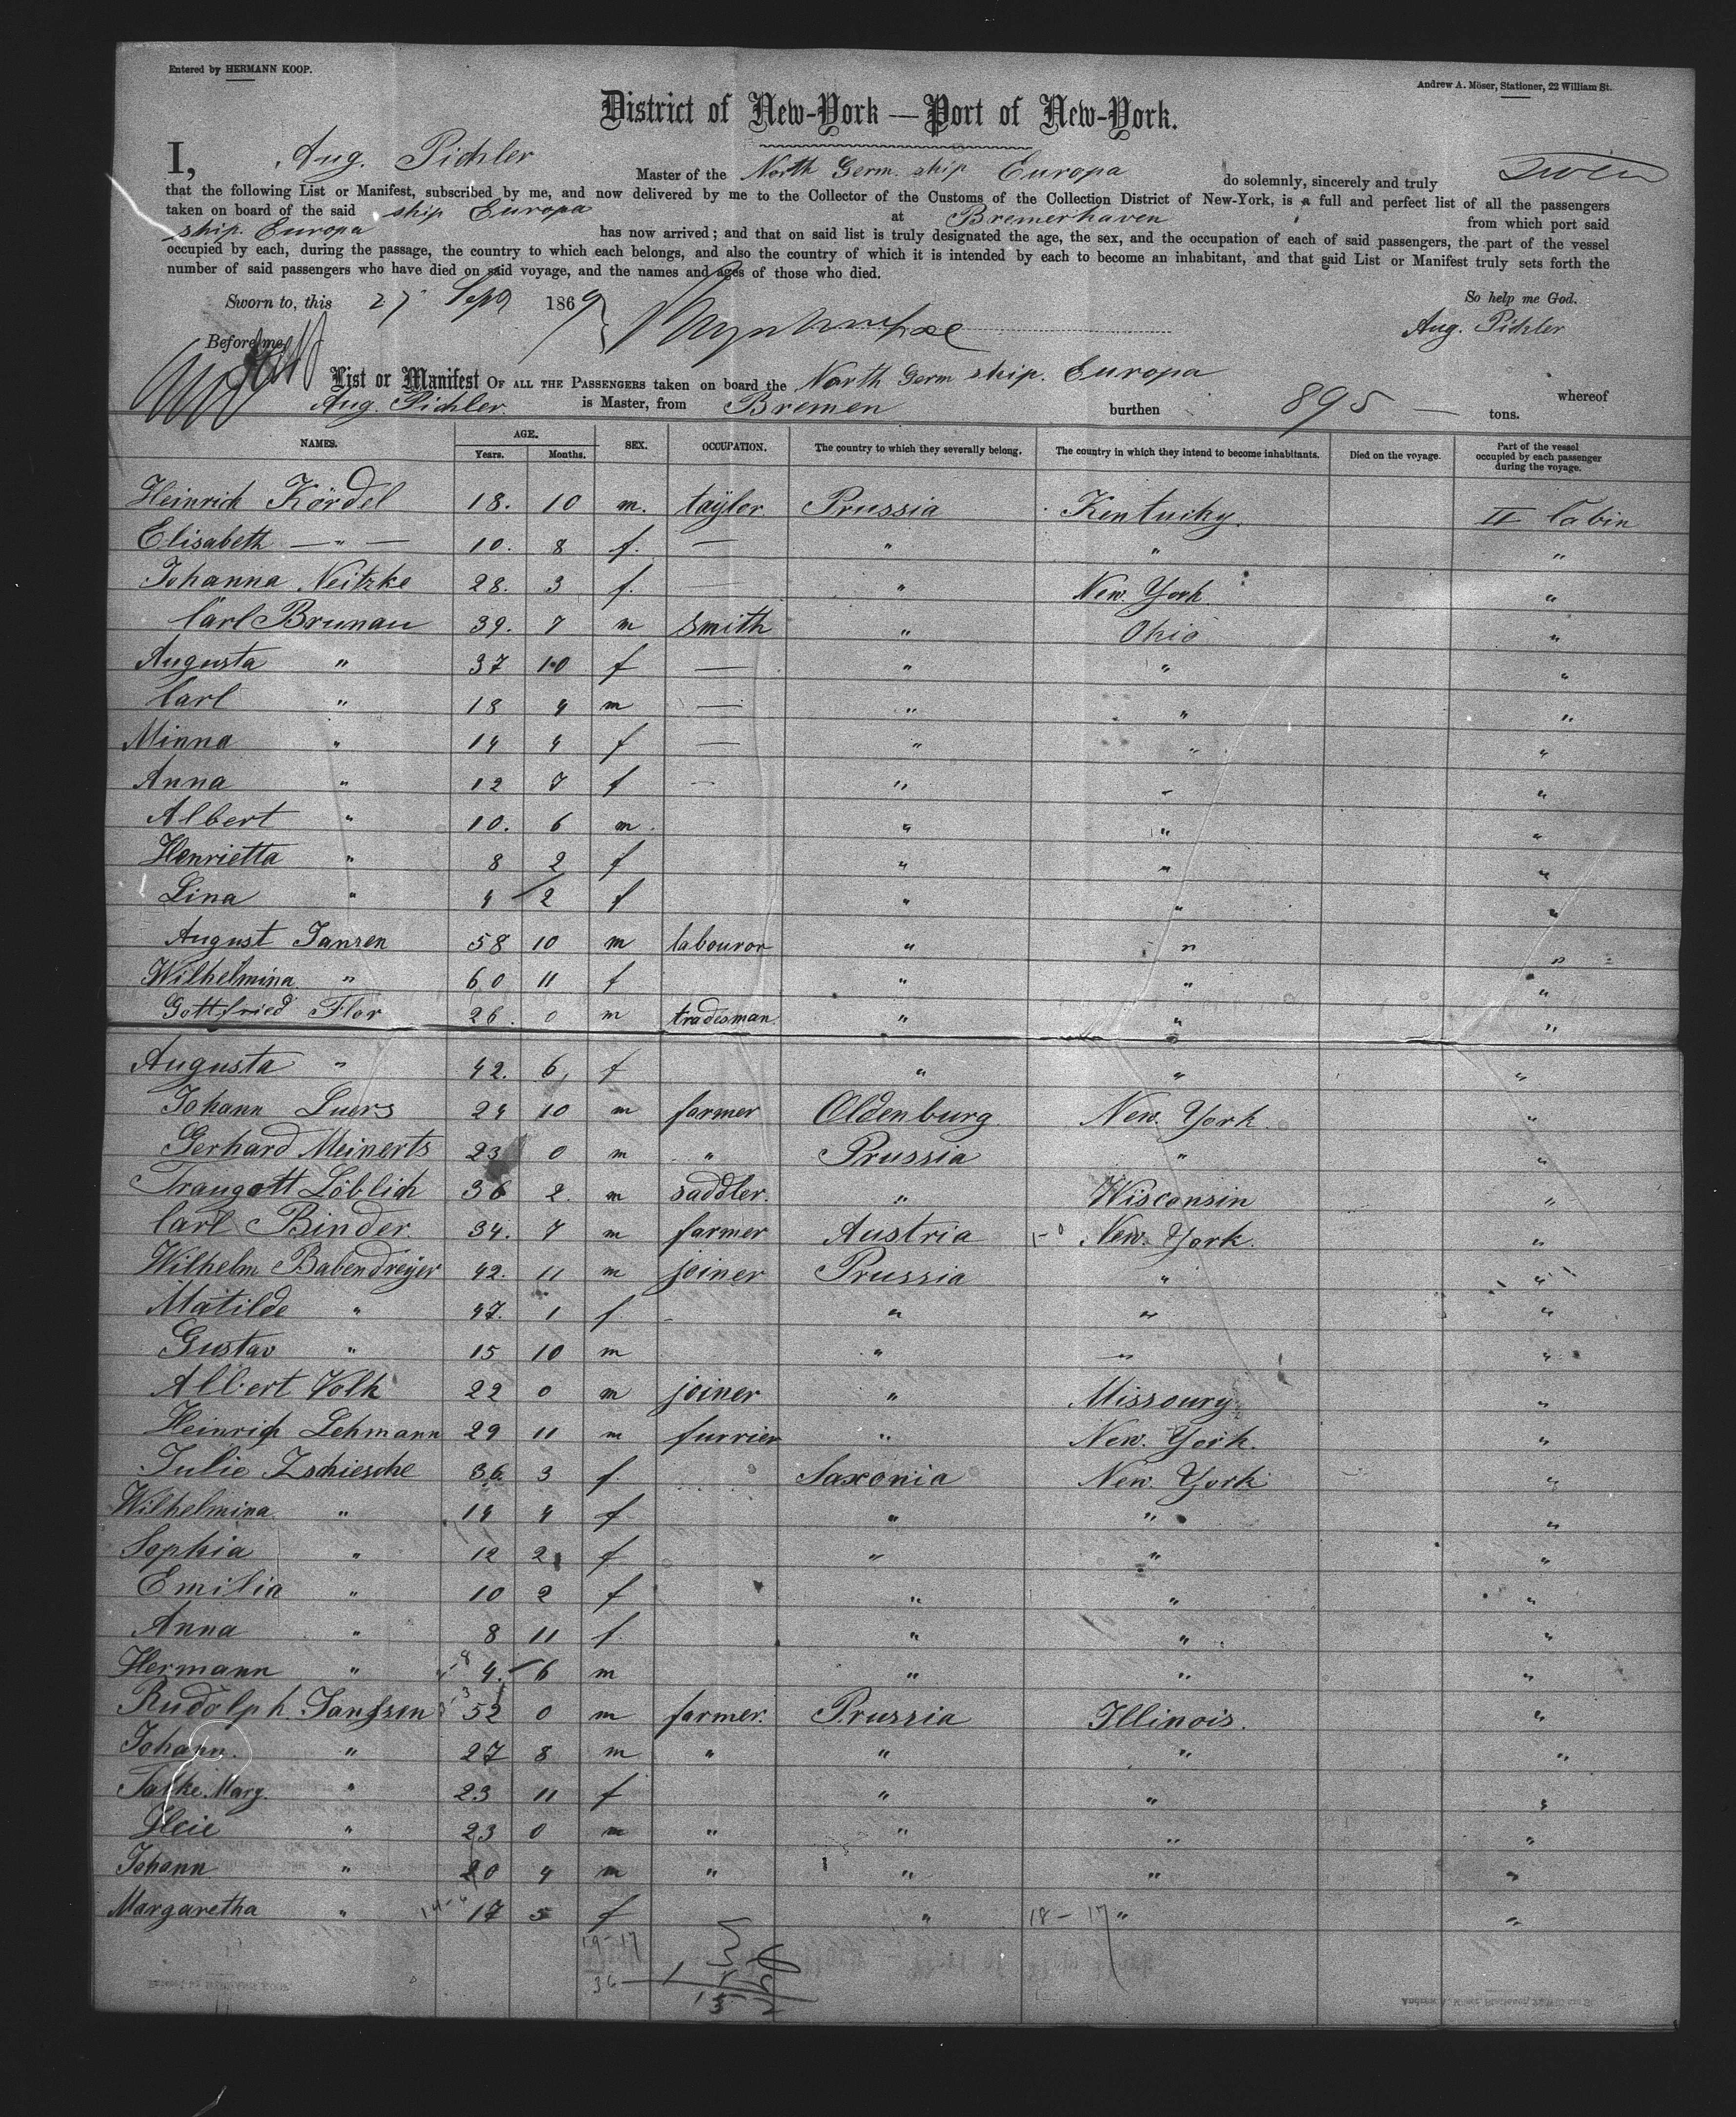 Entered by HERMANN KOOP.
Andrew A. Möser, Stationer, 22 William St.
District of New-York — Port of New-York.
I, Aug. Pichler Master of the North Germ. ship Europa do solemnly, sincerely and truly swear
that the following List or Manifest, subscribed by me, and now delivered by me to the Collector of the Customs of the Collection District of New-York, is a full and perfect list of all the passengers
taken on board of the said ship Europa at Bremerhaven from which port said
ship. Europa has now arrived; and that on said list is truly designated the age, the sex, and the occupation of each of said passengers, the part of the vessel
occupied by each, during the passage, the country to which each belongs, and also the country of which it is intended by each to become an inhabitant, and that said List or Manifest truly sets forth the
number of said passengers who have died on said voyage, and the names and ages of those who died.
Sworn to, this 27 Sept 1869 So help me God.
Before me, Aug. Pichler
List or Manifest OF ALL THE PASSENGERS taken on board the North Germ ship. Europa whereof
Aug. Pichler is Master, from Bremen burthen 895 — tons.
NAMES. AGE. Years. Months. SEX. OCCUPATION. The country to which they severally belong. The country in which they intend to become inhabitants. Died on the voyage. Part of the vessel occupied by each passenger during the voyage.
Heinrich Kördel 18. 10 m. tayler Prussia Kentucky. II Cabin
Elisabeth — " — 10. 8 f. — " " "
Johanna Neitzke 28. 3 f. — " New. York "
Carl Brunau 39. 7 m smith " Ohio "
Augusta " 37 10 f — " " "
Carl " 18 4 m — " " "
Minna " 14 4 f — " " "
Anna " 12 7 f — " " "
Albert " 10. 6 m. " " "
Henrietta " 8 2 f " " "
Lina " 4 2 f " " "
August Jansen 58 10 m labouror " " "
Wilhelmina " 60 11 f " " "
Gottfried Flor 26. 0 m tradesman " " "
Augusta " 42. 6 f " " "
Johann Luers 24 10 m farmer Oldenburg New. York. "
Gerhard Meinerts 23 0 m " Prussia " "
Traugott Löblich 36 2. m saddler. " Wisconsin "
Carl Binder. 34. 7 m farmer Austria New. York. "
Wilhelm Babendreijer 42. 11 m joiner Prussia " "
Matilde " 47. 1 f " " "
Gustav " 15 10 m " " "
Albert Volk 22 0 m joiner " Missoury "
Heinrich Lehmann 29 11 m furrier " New. York. "
Julie Zschiesche 36 3 f. Saxonia New. York "
Wilhelmina " 14 4 f " " "
Sophia " 12 2 f " " "
Emilia " 10 2 f " " "
Anna " 8 11 f. " " "
Hermann " 4. 6 m " " "
Rudolph. Janssen 52 0 m farmer. Prussia Illinois. "
Johann. " 27 8 m " " " "
Marg. " 23 11 f " " "
" 23 0 m " " " "
Johann " 20 4 m " " " "
Margaretha " 17 5 f " 18-17 " "
19-17
36